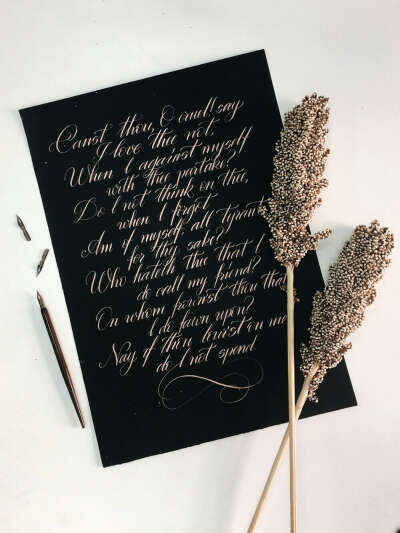 Canst thou, O cruel! say
I love thee not,
When I against myself
with thee partake?
Do I not think on thee,
when I forgot
Am of myself, all tyrant
for thy sake?
Who hateth thee that I
do call my friend?
On whom frownst thou that
I do fawn upon?
Nay, if thou lourst on me
do I not spend